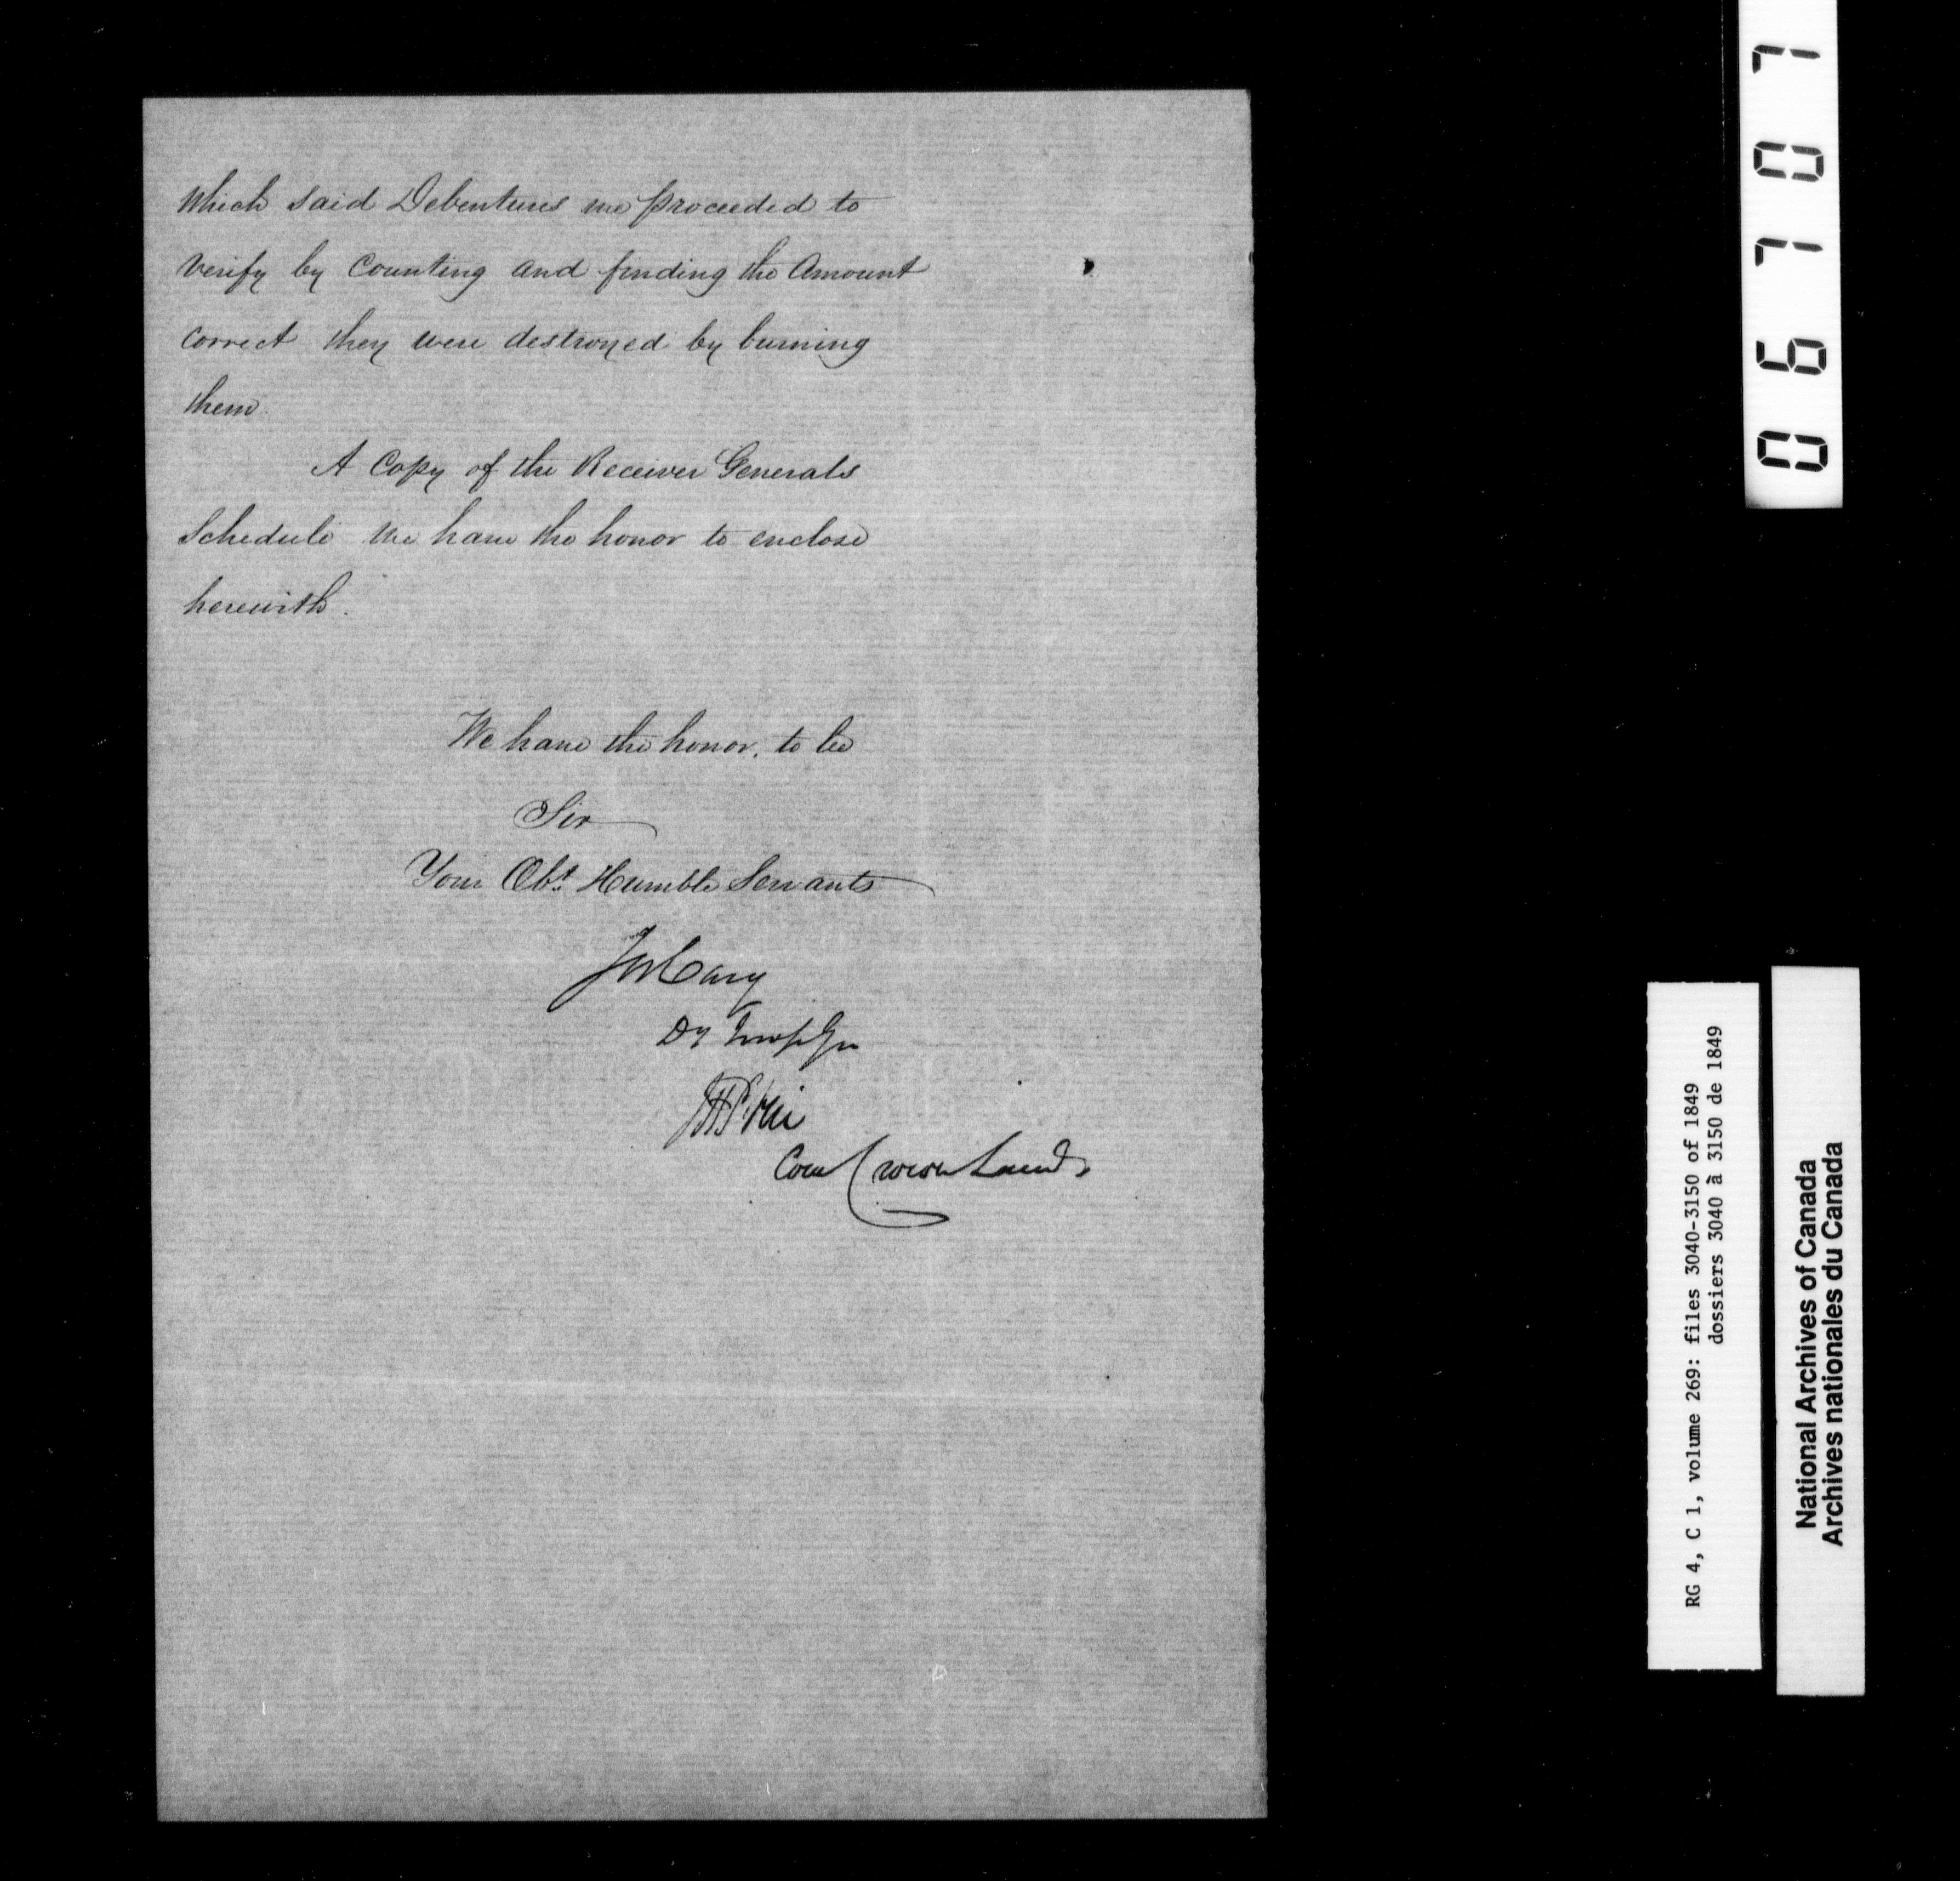 Which said Debentures we proceeded to
verify by Counting and finding the Amount
correct they were destroyed by burning
them
A Copy of the Receiver Generals
Schedule we have the honor to enclose
herewith.
We have the honor, to be
Sir
Your Obt Humble Servants
Jos Cary
Dy Insp Gen
Com Crown Lands
06707
RG 4, C 1, volume 269: files 3040-3150 of 1849
dossiers 3040 à 3150 de 1849
National Archives of Canada
Archives nationales du Canada